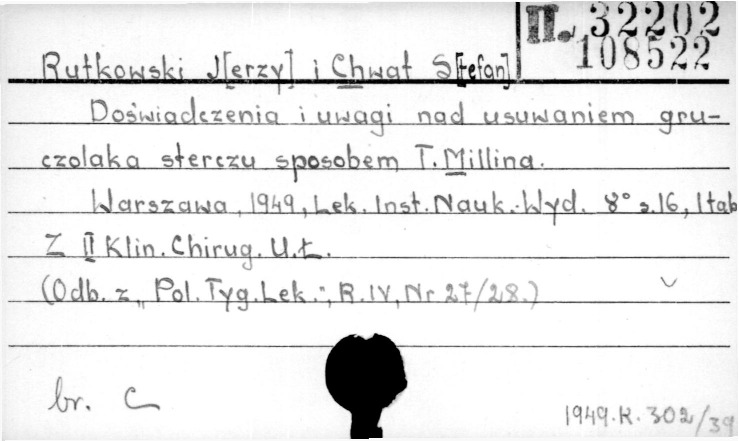 II. 32202
108522
Rutkowski J[erzy] i Chwat S[tefan]
Doświadczenia i uwagi nad usuwaniem gru-
czolaka sterczu sposobem T. Millina.
Warszawa, 1949, Lek. Inst. Nauk.-Wyd. 8° s.16, 1 tab
Z II Klin. Chirug. U.Ł.
(Odb. z „Pol. Tyg. Lek.", R. IV, Nr 27/28.)
br. C
1949.K.302/39